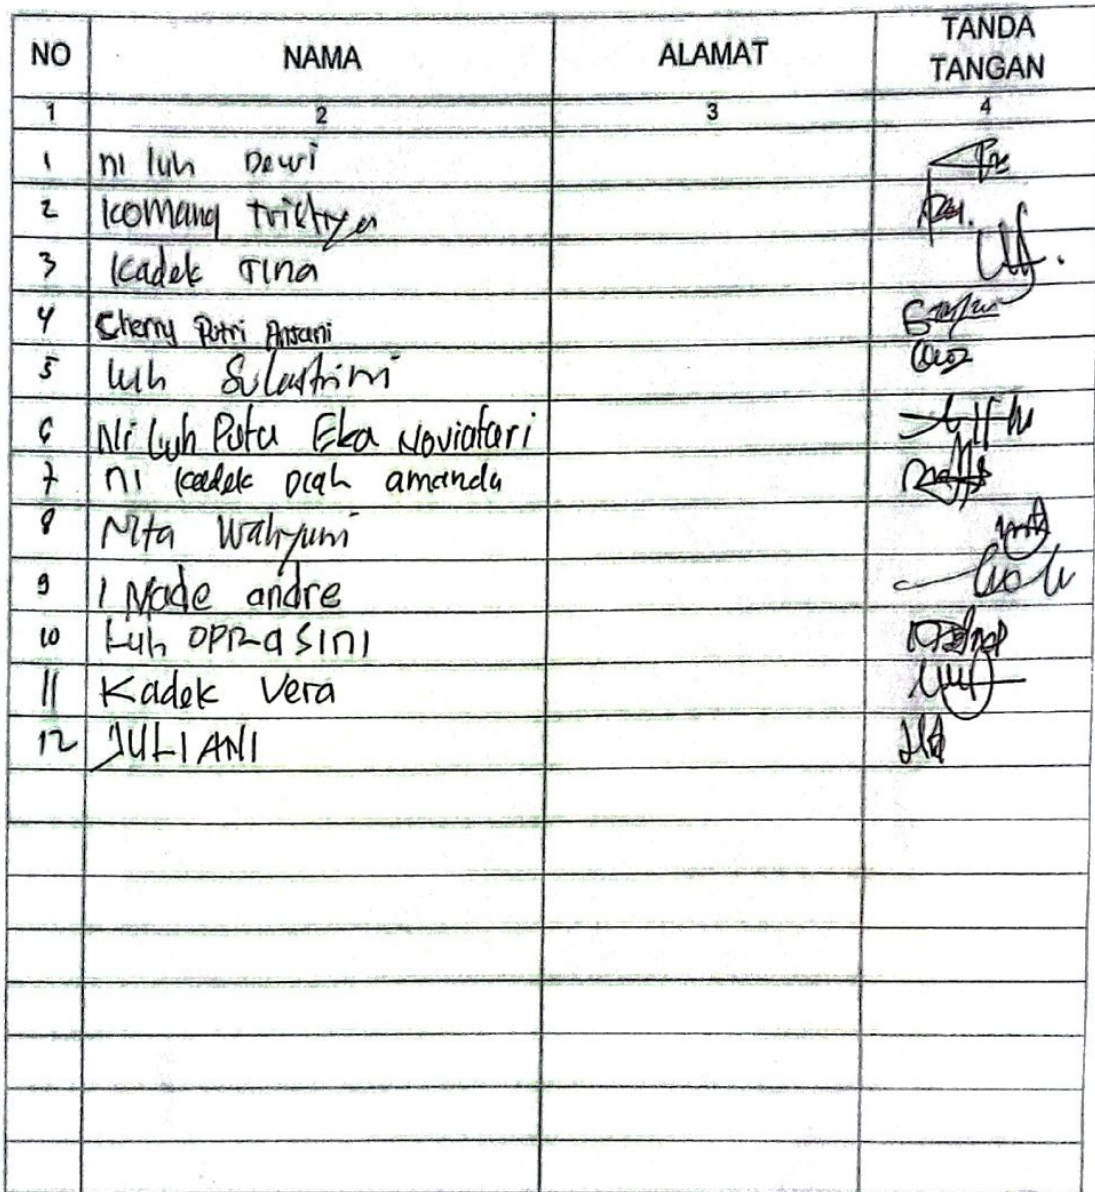 NO NAMA ALAMAT TANDA TANGAN
1 2 3 4
1 ni luh Dewi
2 Komang
3 Kadek Tina
4 Cherry Putri Ansani
5 luh Sulastrini
6 Ni Luh Putu Eka Noviatari
7 ni kadek Diah amanda
8 Nita Wahyuni
9 I Made andre
10 Luh OPRASINI
11 Kadek Vera
12 JULIANI